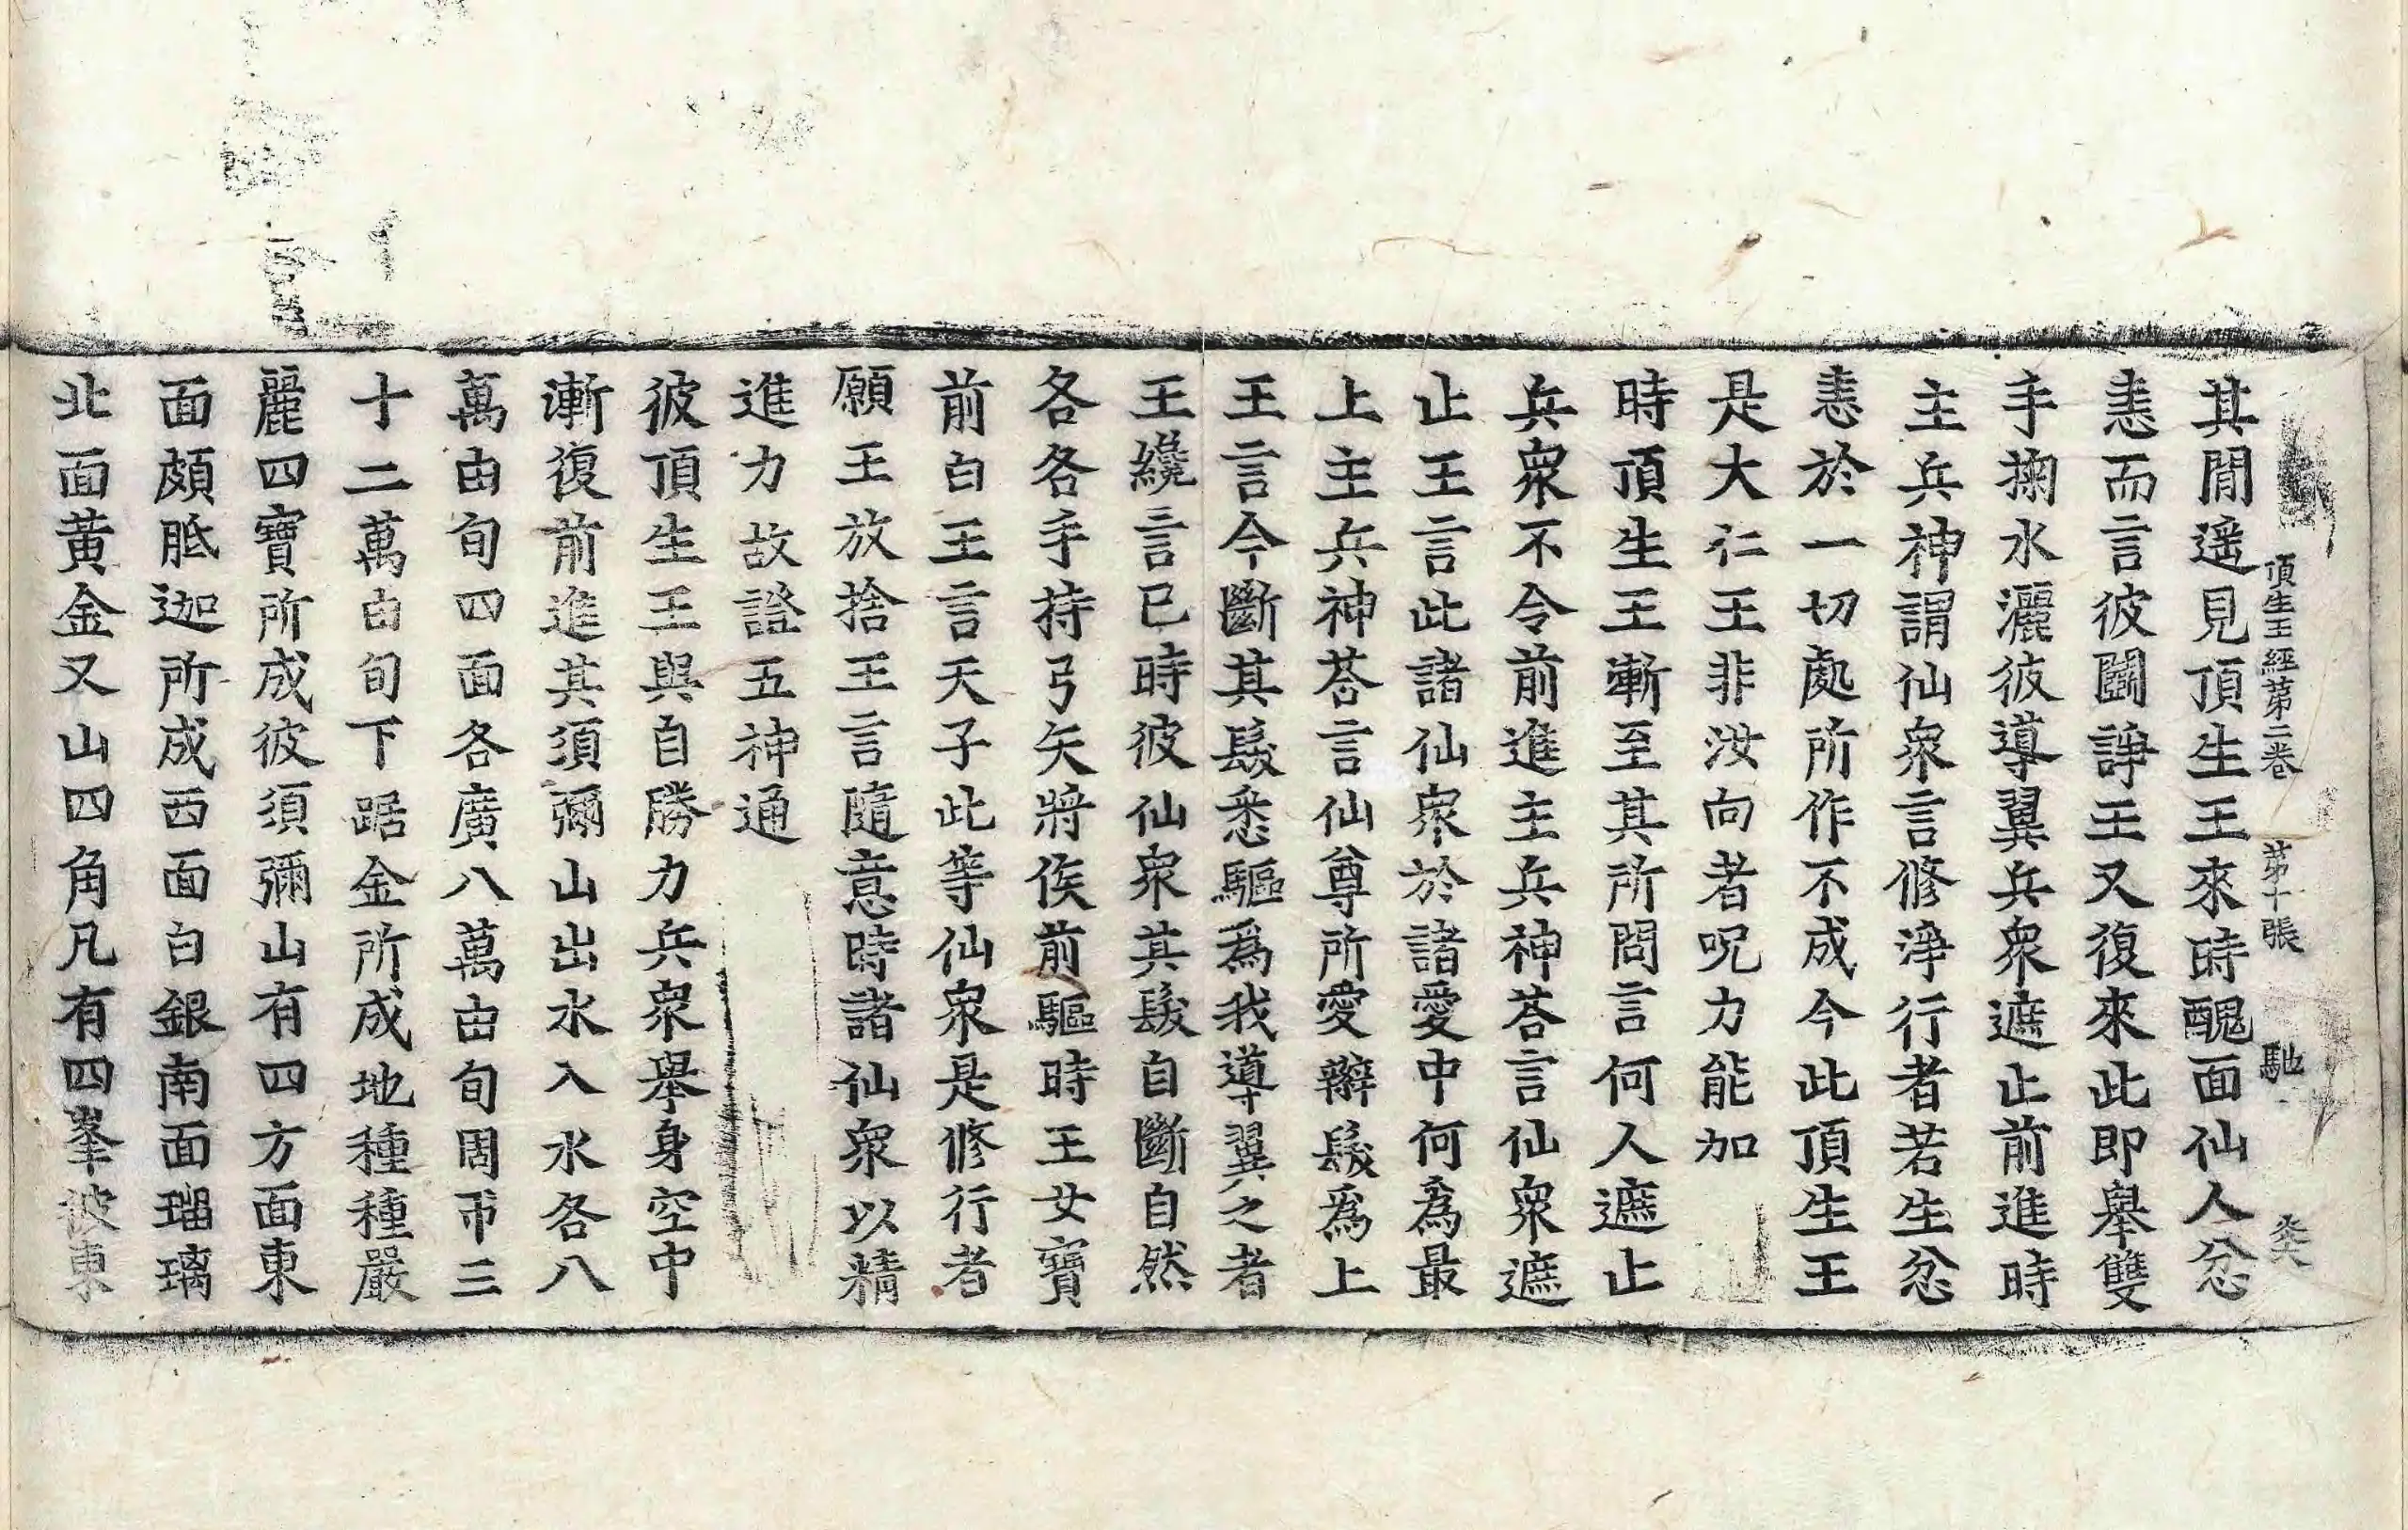 頂生王經第二卷 第十張 馳
其閒遥見頂生王來時醜面仙人忿
恚而言彼鬬諍王又復來此即舉雙
手掬水灑彼導翼兵衆遮止前進時
主兵神謂仙衆言修淨行者若生忿
恚於一切處所作不成今此頂生王
是大仁王非汝向者呪力能加
時頂生王漸至其所問言何人遮止
兵衆不令前進主兵神荅言仙衆遮
止王言此諸仙衆於諸愛中何為最
上主兵神荅言仙尊所愛辮髮爲上
王言今斷其髮悉驅爲我導翼之者
王纔言已時彼仙衆其髮自斷自然
各各手持弓矢將俟前驅時王女寶
前白王言天子此等仙衆是修行者
願王放捨王言隨意時諸仙衆以精
進力故證五神通
彼頂生王與自勝力兵衆舉身空中
漸復前進其須彌山出水入水各八
萬由旬四面各廣八萬由旬周帀三
十二萬由旬下踞金所成地種種嚴
麗四寶所成彼須彌山有四方面東
面頗胝迦所成西面白銀南面瑠璃
北面黃金又山四角凡有四峯彼東